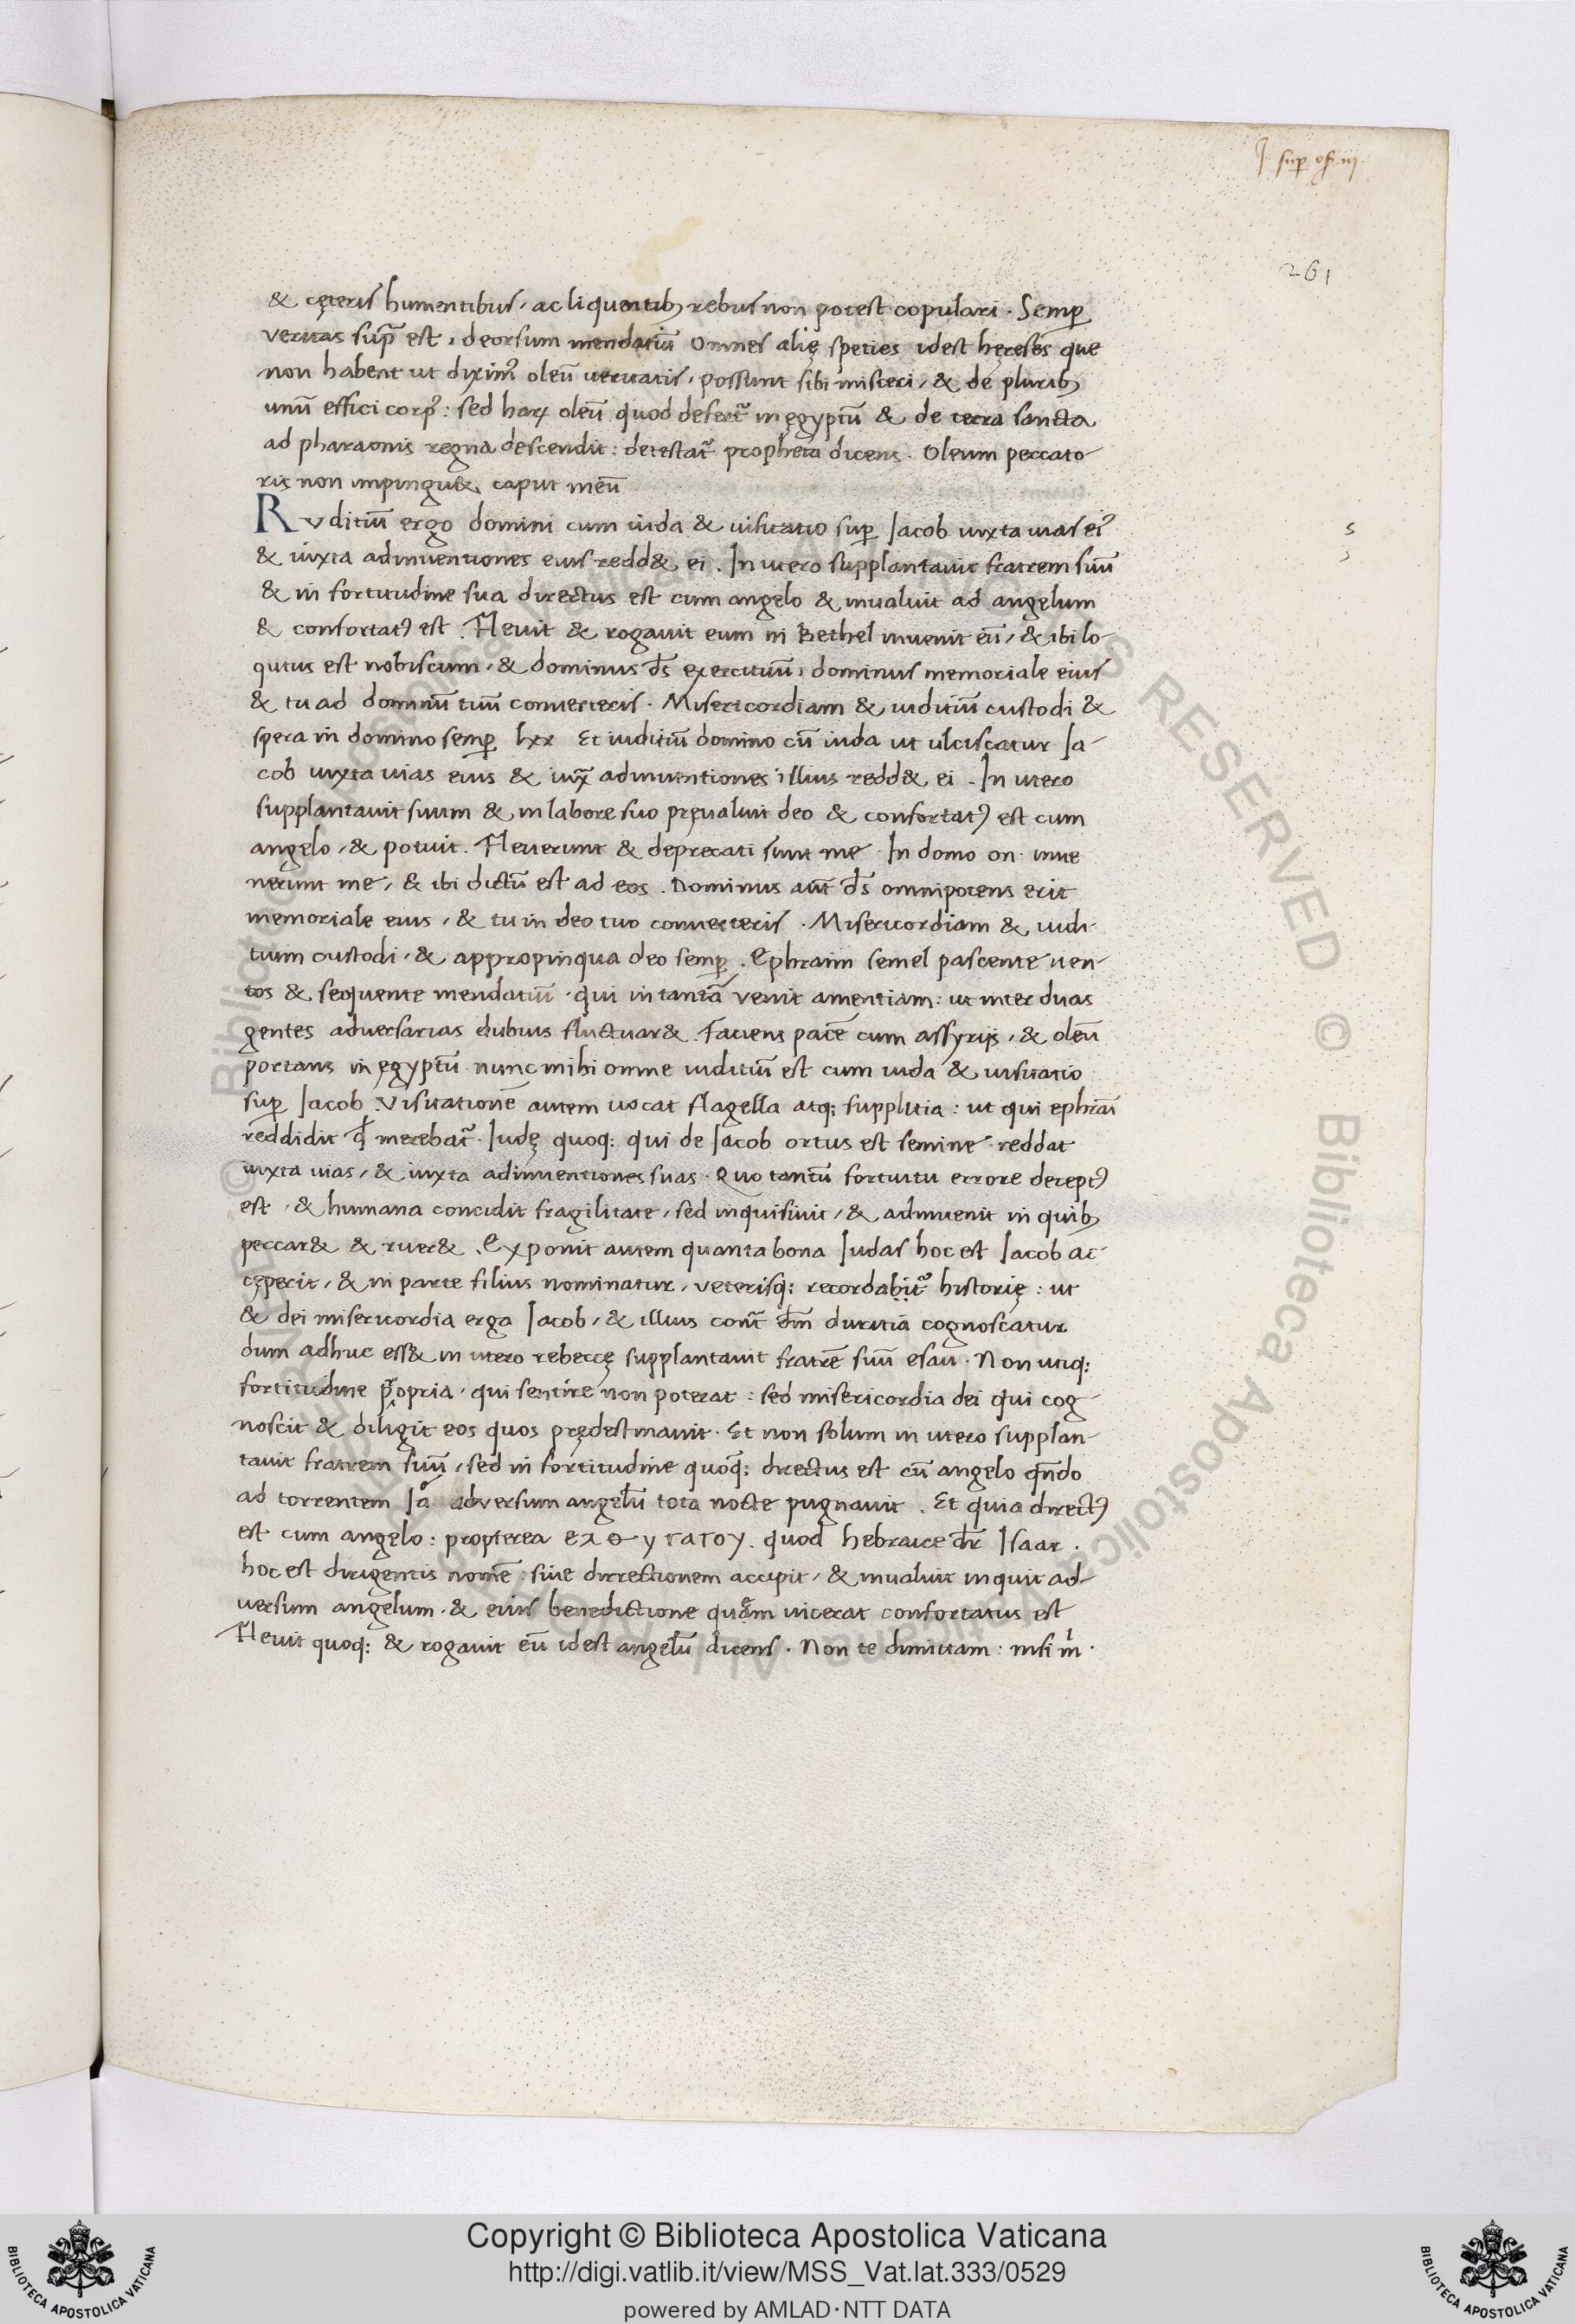 J. sup os. iij.
261
& cęteris humentibus, ac liquentib9 rebus non potest copulari. Semp̱
veritas sup̃ est, deorsum mendatiũ Omnes alię speties idest hęreses que
non habent ut diximꝰ oleũ veritatis, possunt sibi misceri, & de plurib9
unũ effici corpꝰ: sed harꝝ oleũ quod defert᷑ in ęgyptũ & de terra sancta
ad pharaonis regna descendit: detestat᷑ propheta dicens. Oleum peccato-
ris non impingu& caput meũ
Rvditiũ ergo domini cum iuda & uisitatio sup̱ Jacob iuxta uias eiꝰ
& iuxta adinuentiones eius redd& ei. In utero supplantauit fratrem suũ
& in fortitudine sua directus est cum angelo & inualuit ad angelum
& confortatꝰ est. Fleuit & rogauit eum in Bethel inuenit eũ, & ibi lo-
qutus est nobiscum, & dominus d̄s exercituũ, dominus memoriale eius
& tu ad dominũ tuũ conuerteris. Misericordiam & iuditiũ custodi &
spera in domino semp̱ lxx Et iuditiũ domino cũ iuda ut ulciscatur Ja-
cob iuxta uias eius & iux̃ adinuentiones illius redd& ei. In utero
supplantauit suum & in labore suo pręualuit deo & confortatꝰ est cum
angelo, & potuit. Fleuerunt & deprecati sunt me. In domo on. inue
nerunt me, & ibi dictũ est ad eos. Dominus aũt d̄s omnipotens erit
memoriale eius, & tu in deo tuo conuerteris. Misericordiam & iudi-
tium custodi, & appropinqua deo semp̱. Ephraim semel pascente uen-
tos & sequente mendatiũ. qui in tantã venit amentiam: ut inter duas
gentes aduersarias dubius fluctuar&. Faciens pacẽ cum assyrijs, & oleũ
portans in ęgyptũ nunc mihi omne iuditiũ est cum iuda & uisitatio
sup̱ Jacob. Visitationẽ autem uocat flagella atq; supplitia: ut qui ephraĩ
reddidit qđ merebat᷑. Iudę quoq; qui de Jacob ortus est semine reddat
iuxta uias, & iuxta adinuentiones suas. Quo tantũ fortuitu errore deceptꝰ
est, & humana concidit fragilitate, sed inquisiuit, & adinuenit in quib9
peccar& & ruer&. Exponit autem quanta bona Iudas hoc est Jacob ac-
cęperit, & in parte filius nominatur, veterisq; recordabit᷑ historię: ut
& dei misericordia erga Jacob, & illius cont̃ dm̄ duritiã cognoscatur
dum adhuc ess& in utero rebeccę supplantauit fratrẽ suũ esau. Non utiq;
fortitudine propria, qui sentire non poterat: sed misericordia dei qui cog-
noscit & diligit eos quos prędestinauit. Et non solum in utero supplan-
tauit fratrem suũ, sed in fortitudine quoq; directus est cũ angelo qñdo
ad torrentem Ja adversum angelũ tota nocte pugnauit. Et quia directꝰ
est cum angelo: propterea ελθυτατου. quod hebraice dr̄ Isaar.
hoc est dirigentis nomẽ: siue directionem accipit, & inualuit inquit ad-
uersum angelum, & eius benedictione quem uicerat confortatus est
Fleuit quoq; & rogauit eũ idest angelũ dicens. Non te dimittam: nisi m̍.